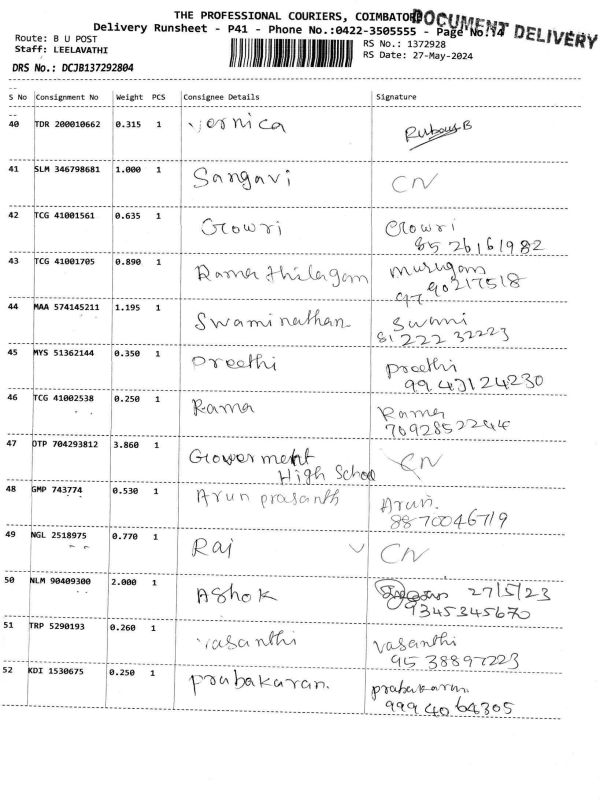 THE PROFESSIONAL COURIERS, COIMBATORE
DOCUMENT DELIVERY
Delivery Runsheet - P41 - Phone No.:0422-3505555 - Page No.:14
Route: B U POST
RS No.: 1372928
Staff: LEELAVATHI
RS Date: 27-May-2024
DRS No.: DCJB137292804
S No Consignment No Weight PCS Consignee Details Signature
40 TDR 200010662 0.315 1 Vernica
41 SLM 346798681 1.000 1 Sangavi CN
42 TCG 41001561 0.635 1 Gowri Gowri
85 26161982
43 TCG 41001705 0.890 1 Rama thilagam Murugam
97 90217518
44 MAA 574145211 1.195 1 Swaminathan Swami
81 222 32223
45 MYS 51362144 0.350 1 Preethi Preethi
99 43124230
46 TCG 41002538 0.250 1 Rama Rama
7092852244
47 OTP 704293812 3.860 1 Goverment
High School CN
48 GMP 743774 0.530 1 Arun prasanth Arun.
8870046719
49 NGL 2518975 0.770 1 Raj CN
50 NLM 90409300 2.000 1 Ashok 27/5/23
9345345670
51 TRP 5290193 0.260 1 vasanthi vasanthi
95 38897223
52 KDI 1530675 0.250 1 prabakaran. prabakaran.
999 40 64305